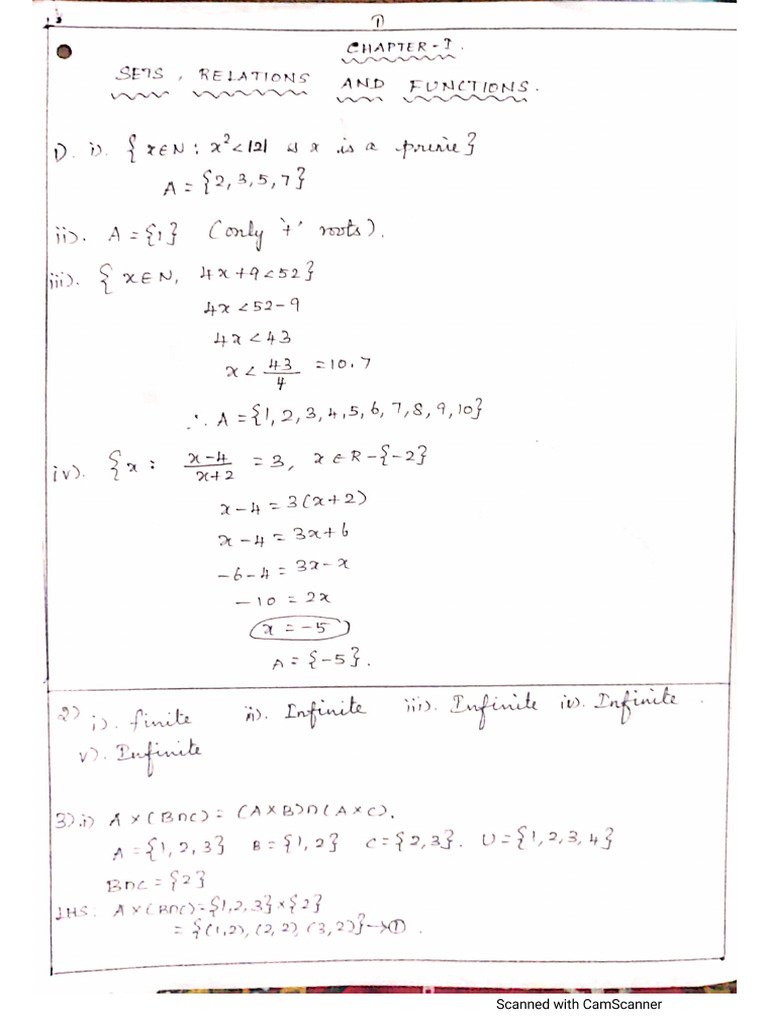 1
CHAPTER-1.
SETS, RELATIONS AND FUNCTIONS.
1). i). {x∈N : x²<121 & x is a prime}
A = {2,3,5,7}
ii). A = {1} (only '+' roots).
iii). {x∈N, 4x+9<52}
4x<52-9
4x<43
x< 43/4 =10.7
∴ A={1,2,3,4,5,6,7,8,9,10}
iv). {x : x-4/x+2 = 3, x∈R-{-2}
x-4 = 3(x+2)
x-4 = 3x+6
-6-4 = 3x-x
-10 = 2x
x = -5
A = {-5}.
2) i). finite ii). Infinite iii). Infinite iv). Infinite.
v). Infinite
3).i) A×(B∩C)=(A×B)∩(A×C).
A={1,2,3} B={1,2} C={2,3}. U={1,2,3,4}
B∩C={2}
LHS: A×(B∩C)={1,2,3}×{2}
={(1,2),(2,2),(3,2)}→①.
Scanned with CamScanner